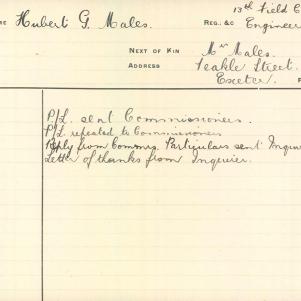 Hubert G. Males.
13th Field C
REG. &C Engineer
NEXT OF KIN Mr Males.
ADDRESS Teakle Street.
Exeter.
P/L. sent Commissioners.
P/L repeated to Commissioners
Reply from Commrs. Particulars sent Inquir
Letter of thanks from Inquirer.